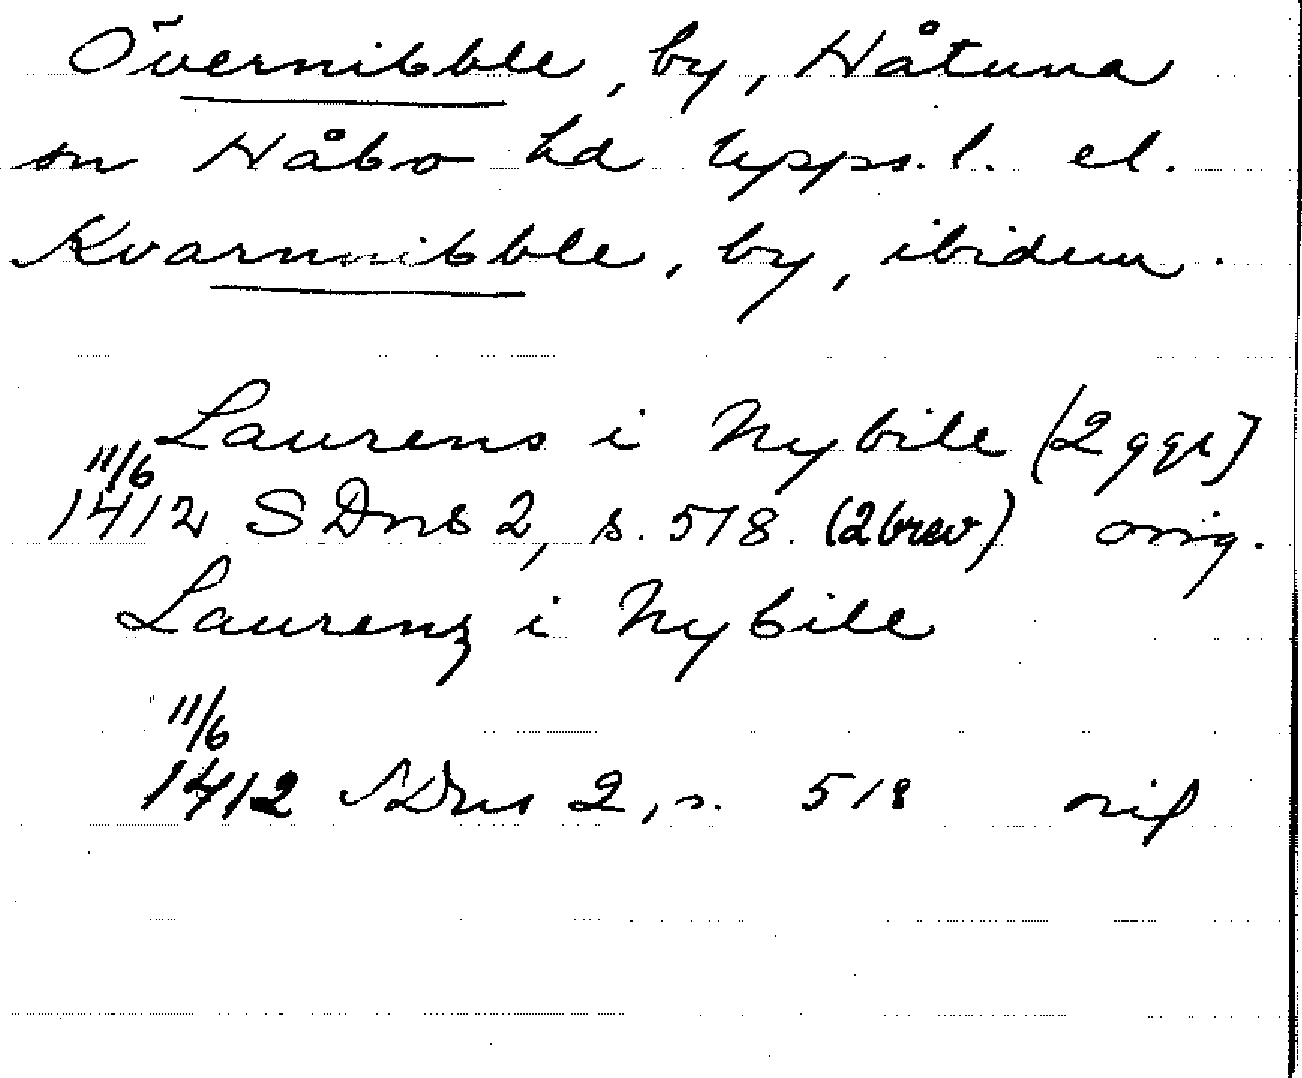 Övernibble, by, Håtuna
sn Håbo hd Upps. l. el.
Kvarnnibble, by, ibidem.
Laurens i Nybile (2 ggr)
11/6
1412 SDns 2, s. 518. (2 brev) orig.
Laurenz i Nybile
11/6
1412 SDns 2, s. 518 orig